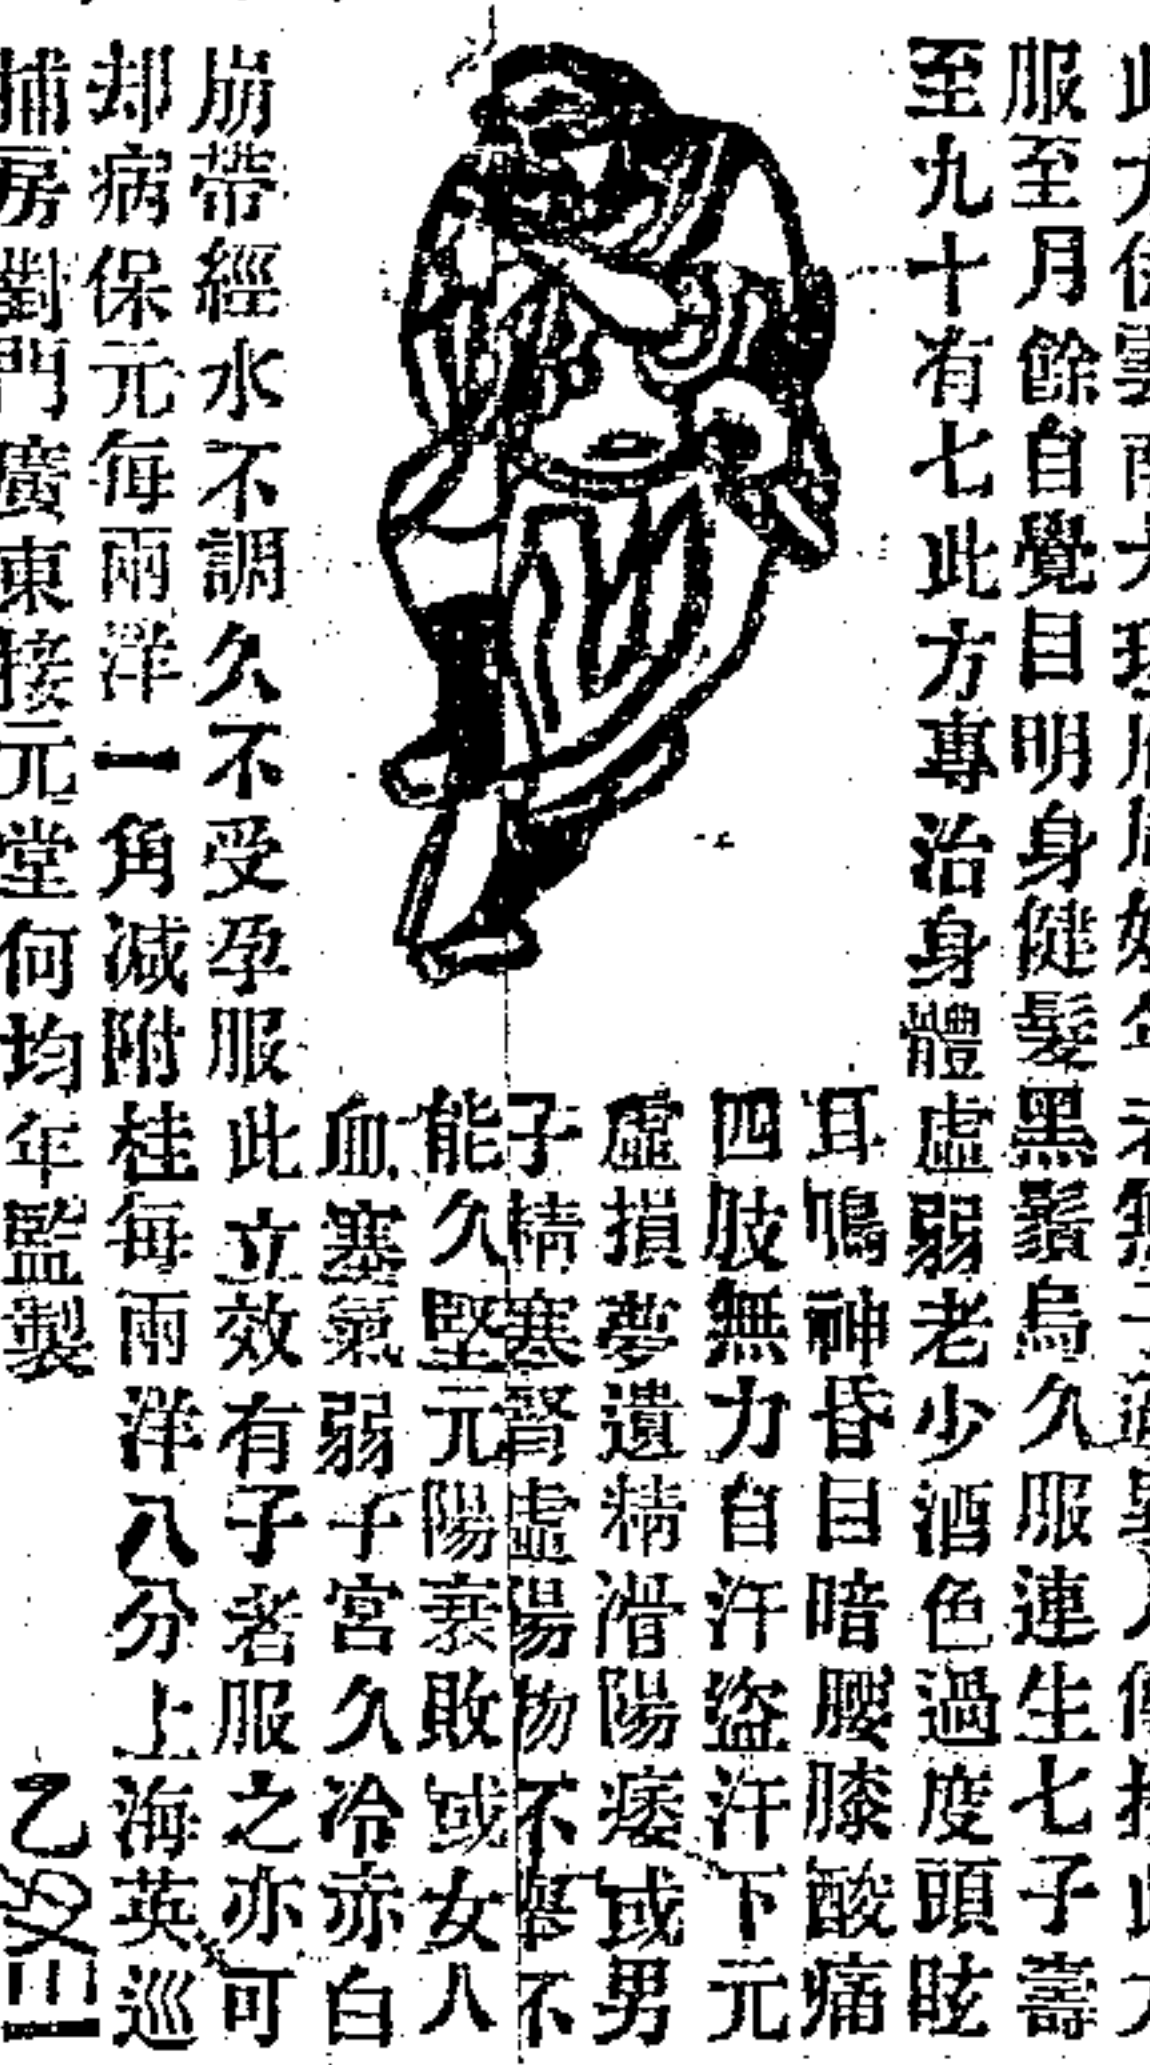 此方雲南大理府周年老無子適異人傳授此方
服至月餘自覺目明身健髮黑鬚烏久服連生七子壽
至九十有七此方專治身體虛弱老少酒色過度頭眩
耳鳴神昏目暗腰膝酸痛
四肢無力自汗盜汗下元
虛損夢遺精滑陽痿或男
子精寒腎虛陽物不舉不
能久堅元陽衰敗或女人
血塞氣弱子宮久冷赤白
崩帶經水不調久不受孕服此立效有子者服之亦可
却病保元每兩洋一角减附桂每兩洋八分上海英巡
捕房對門廣東接元堂何均年監製